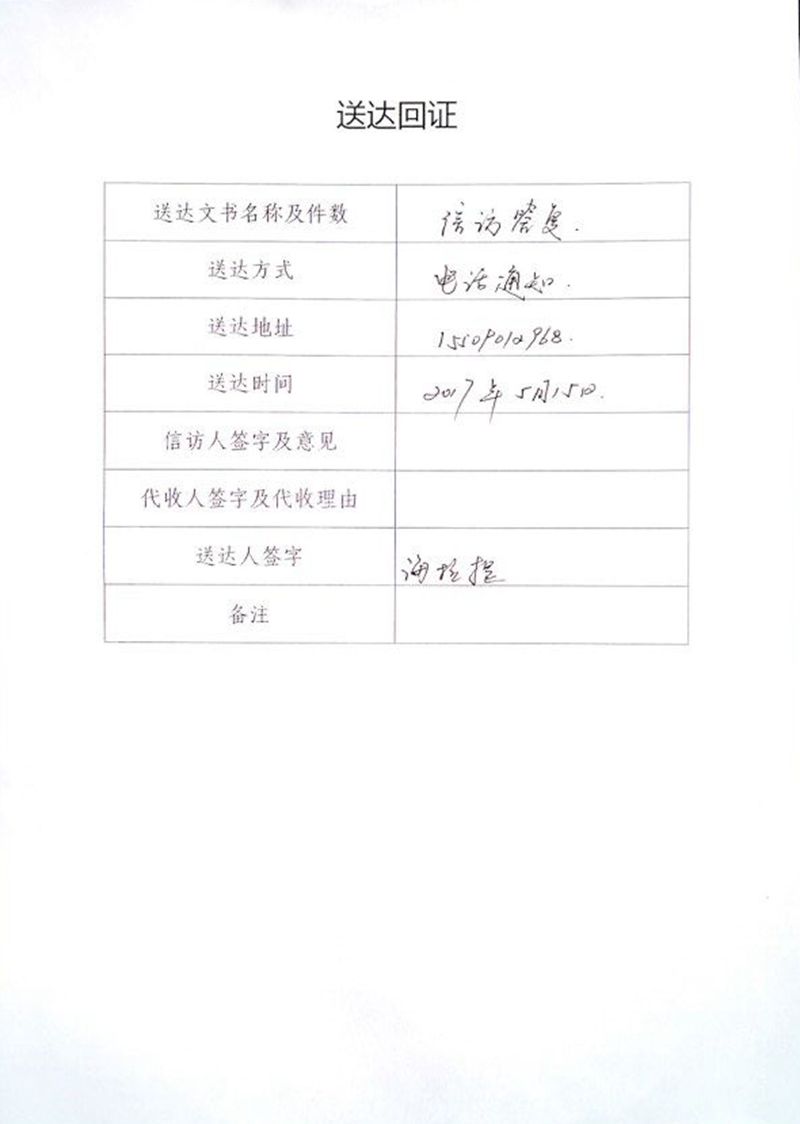 送达回证
送达文书名称及件数 信访答复.
送达方式 电话通知.
送达地址 15509012968.
送达时间 2017年5月15日.
信访人签字及意见
代收人签字及代收理由
送达人签字
备注